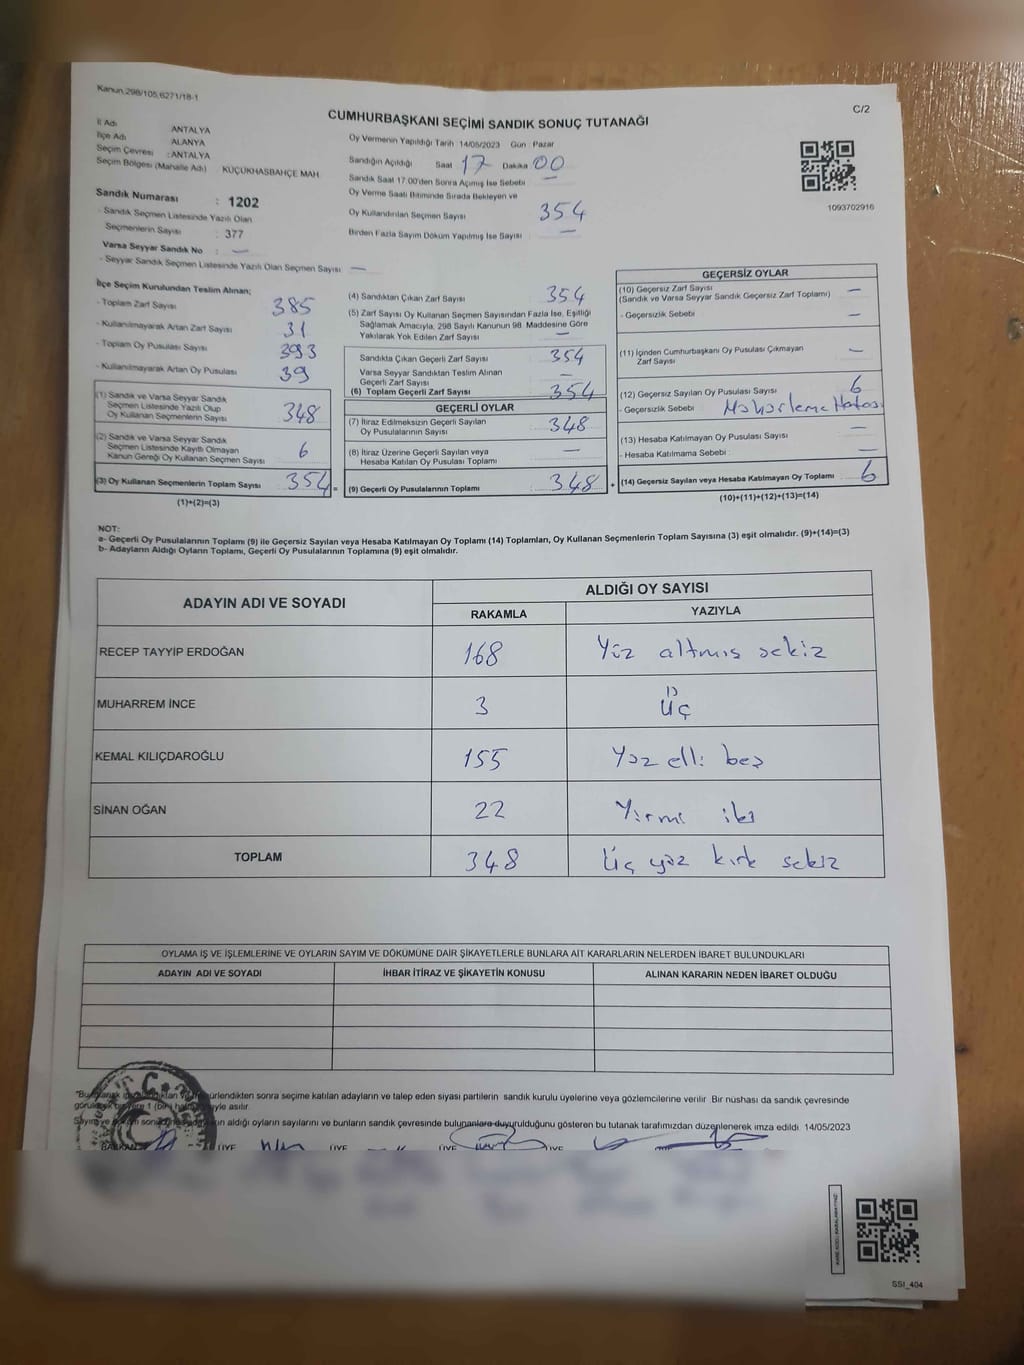 Kanun,298/105,6271/18-1
C/2
CUMHURBAŞKANI SEÇİMİ SANDIK SONUÇ TUTANAĞI
İl Adı ANTALYA
İlçe Adı ALANYA
Seçim Çevresi : ANTALYA
Seçim Bölgesi (Mahalle Adı) KÜÇÜKHASBAHÇE MAH
Oy Vermenin Yapıldığı Tarih 14/05/2023 Gün : Pazar
Sandığın Açıldığı Saat 17 Dakika 00
Sandık Saat 17:00'den Sonra Açımış İse Sebebi —
Oy Verme Saati Bitiminde Sırada Bekleyen ve
Oy Kullandırılan Seçmen Sayısı 354
Birden Fazla Sayım Döküm Yapılmış İse Sayısı —
1093702916
Sandık Numarası : 1202
- Sandık Seçmen Listesinde Yazılı Olan
Seçmenlerin Sayısı : 377
Varsa Seyyar Sandık No : —
- Seyyar Sandık Seçmen Listesinde Yazılı Olan Seçmen Sayısı —
İlçe Seçim Kurulundan Teslim Alınan;
- Toplam Zarf Sayısı 385
- Kullanılmayarak Artan Zarf Sayısı 31
- Toplam Oy Pusulası Sayısı 393
- Kullanılmayarak Artan Oy Pusulası 39
(1) Sandık ve Varsa Seyyar Sandık
Seçmen Listesinde Yazılı Olup
Oy Kullanan Seçmenlerin Sayısı 348
(2) Sandık ve Varsa Seyyar Sandık
Seçmen Listesinde Kayıtlı Olmayan
Kanun Gereği Oy Kullanan Seçmen Sayısı 6
(3) Oy Kullanan Seçmenlerin Toplam Sayısı 354 =
(1)+(2)=(3)
(4) Sandıktan Çıkan Zarf Sayısı 354
(5) Zarf Sayısı Oy Kullanan Seçmen Sayısından Fazla İse, Eşitliği
Sağlamak Amacıyla, 298 Sayılı Kanunun 98. Maddesine Göre
Yakılarak Yok Edilen Zarf Sayısı —
Sandıkta Çıkan Geçerli Zarf Sayısı 354
Varsa Seyyar Sandıktan Teslim Alınan
Geçerli Zarf Sayısı —
(6) Toplam Geçerli Zarf Sayısı 354
GEÇERLİ OYLAR
(7) İtiraz Edilmeksizin Geçerli Sayılan
Oy Pusulalarının Sayısı 348
(8) İtiraz Üzerine Geçerli Sayılan veya
Hesaba Katılan Oy Pusulası Toplamı —
(9) Geçerli Oy Pusulalarının Toplamı : 348 +
GEÇERSİZ OYLAR
(10) Geçersiz Zarf Sayısı —
(Sandık ve Varsa Seyyar Sandık Geçersiz Zarf Toplamı)
- Geçersizlik Sebebi —
(11) İçinden Cumhurbaşkanı Oy Pusulası Çıkmayan
Zarf Sayısı —
(12) Geçersiz Sayılan Oy Pusulası Sayısı 6
- Geçersizlik Sebebi Mühürleme Hatası
(13) Hesaba Katılmayan Oy Pusulası Sayısı —
- Hesaba Katılmama Sebebi : —
(14) Geçersiz Sayılan veya Hesaba Katılmayan Oy Toplamı 6
(10)+(11)+(12)+(13)=(14)
NOT:
a- Geçerli Oy Pusulalarının Toplamı (9) ile Geçersiz Sayılan veya Hesaba Katılmayan Oy Toplamı (14) Toplamları, Oy Kullanan Seçmenlerin Toplam Sayısına (3) eşit olmalıdır. (9)+(14)=(3)
b- Adayların Aldığı Oyların Toplamı, Geçerli Oy Pusulalarının Toplamına (9) eşit olmalıdır.
ADAYIN ADI VE SOYADI ALDIĞI OY SAYISI
RAKAMLA YAZIYLA
RECEP TAYYİP ERDOĞAN 168 Yüz altmış sekiz
MUHARREM İNCE 3 Üç
KEMAL KILIÇDAROĞLU 155 Yüz elli beş
SİNAN OĞAN 22 Yirmi iki
TOPLAM 348 Üç yüz kırk sekiz
OYLAMA İŞ VE İŞLEMLERİNE VE OYLARIN SAYIM VE DÖKÜMÜNE DAİR ŞİKAYETLERLE BUNLARA AİT KARARLARIN NELERDEN İBARET BULUNDUKLARI
ADAYIN ADI VE SOYADI İHBAR İTİRAZ VE ŞİKAYETİN KONUSU ALINAN KARARIN NEDEN İBARET OLDUĞU
sonra seçime katılan adayların ve talep eden siyasi partilerin sandık kurulu üyelerine veya gözlemcilerine verilir. Bir nüshası da sandık çevresinde
asılır.
aldığı oyların sayılarını ve bunların sandık çevresinde bulunanlara duyurulduğunu gösteren bu tutanak tarafımızdan düzenlenerek imza edildi. 14/05/2023
BAŞKAN ÜYE ÜYE ÜYE ÜYE
SSI_404